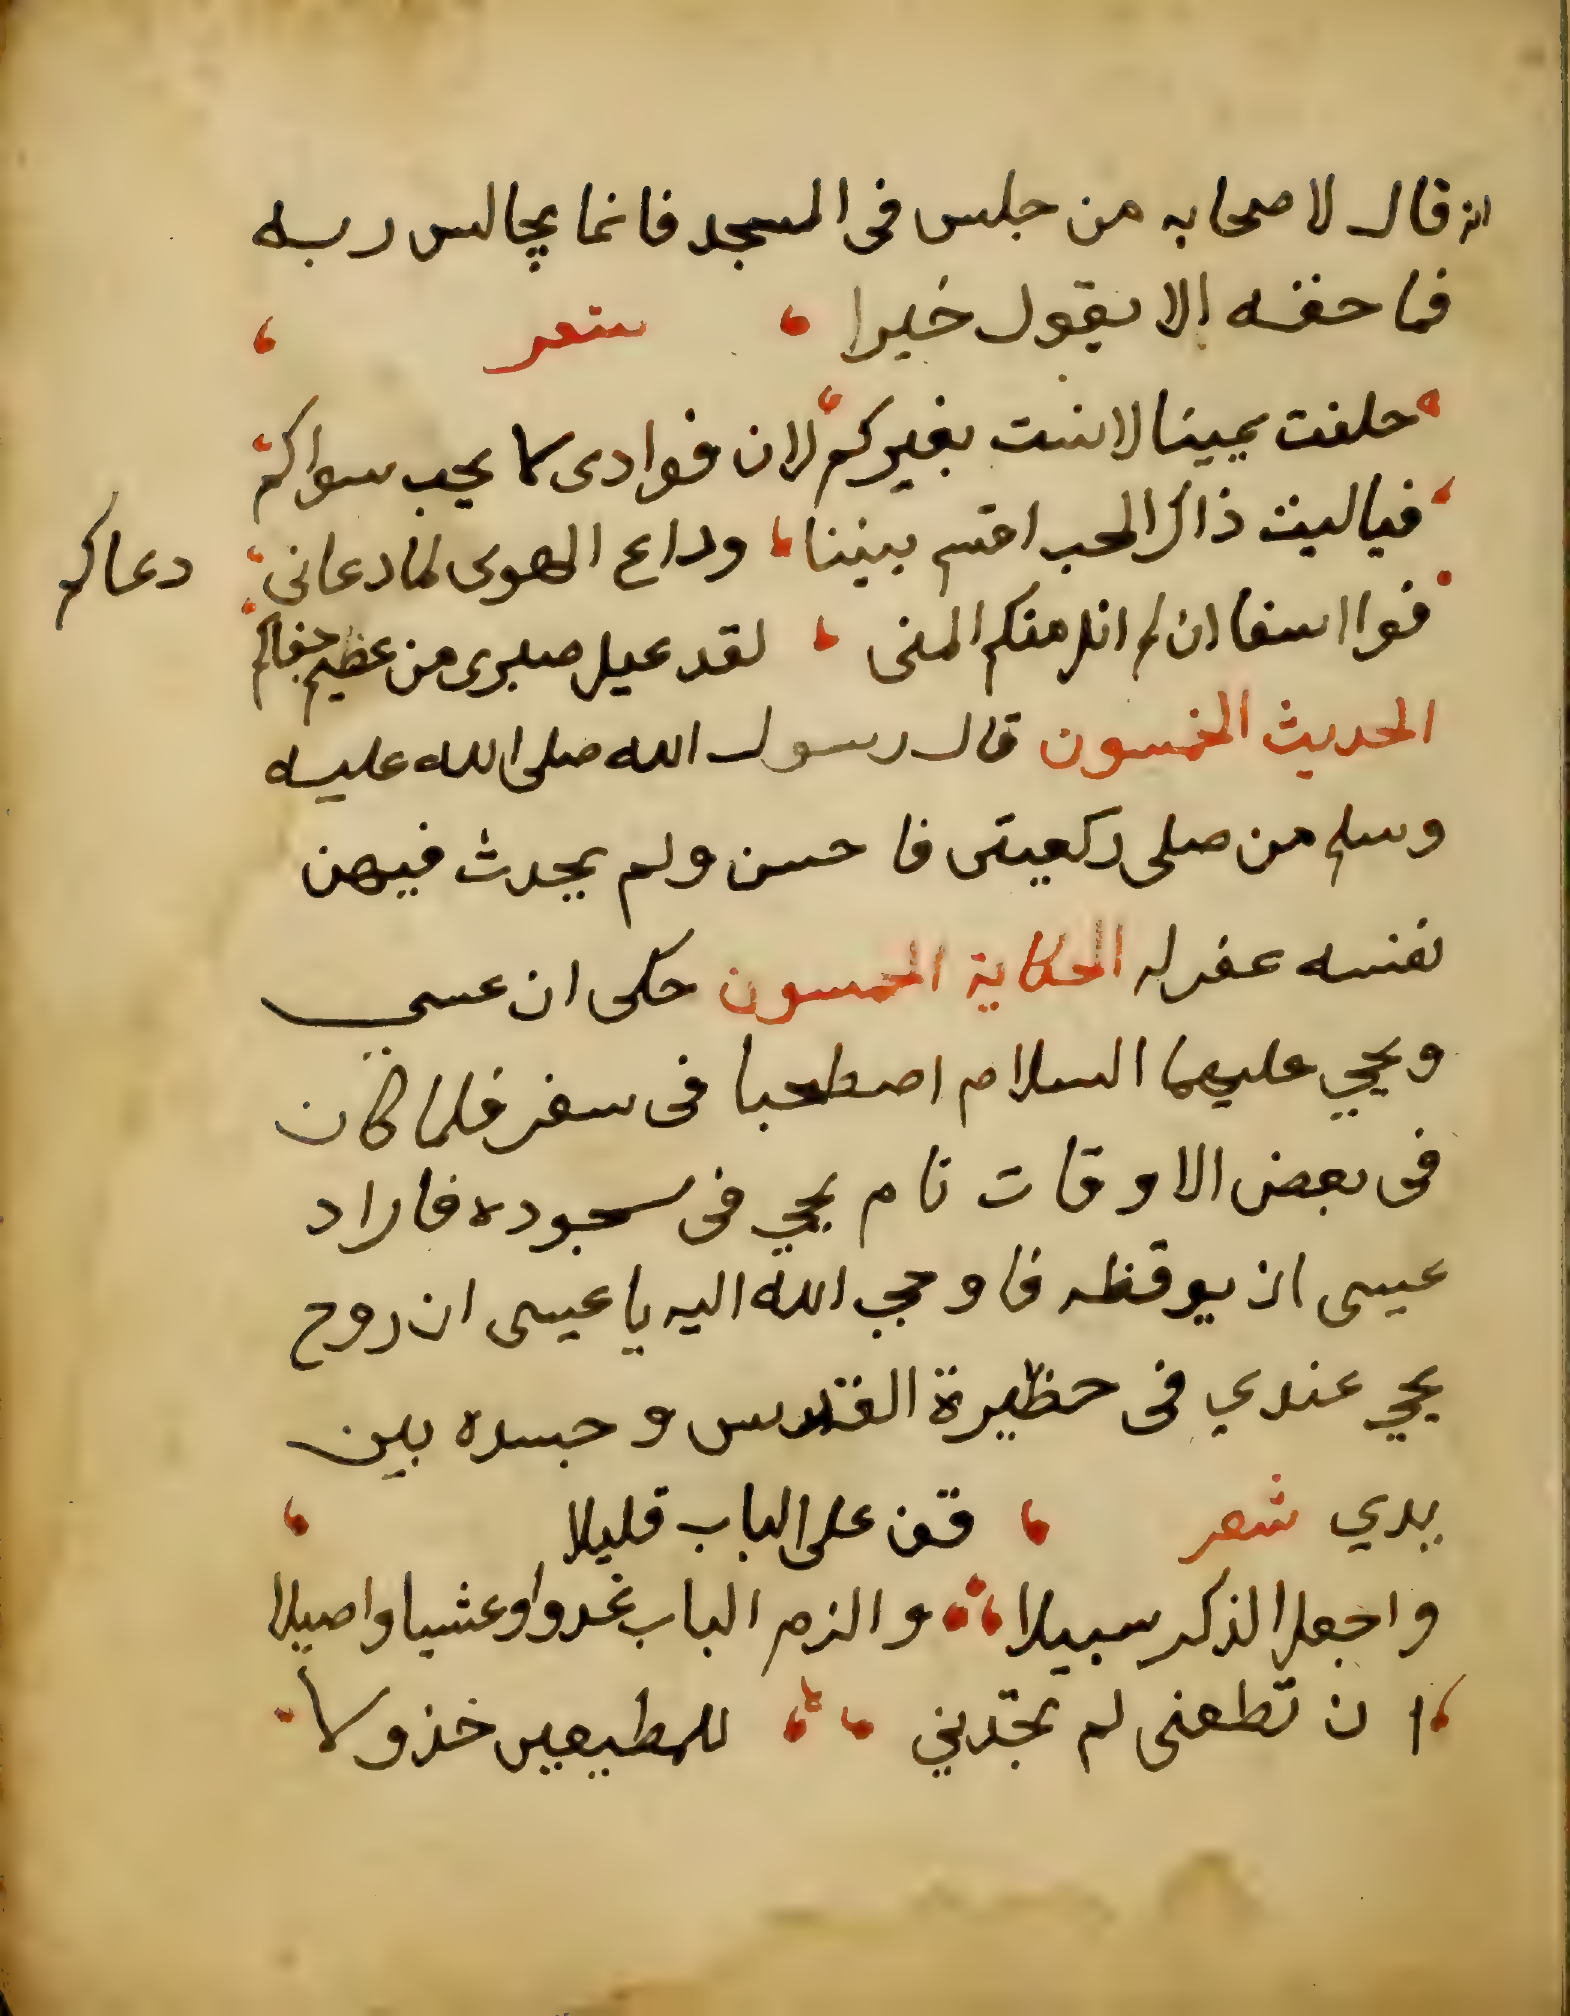 انه قال لاصحابه من جلس فى المسجد فانما يجالس ربه
فما حقه الا يقول خيرا شعر
حلفت يمينا لا انست بغيركم لان فوادى لا يحب سواكم
فياليت ذاك الحب اقتسم بيننا وداع الهوى لما دعانى دعاكم
فوا اسفا ان لم انل منكم المنى لقد عيل صبرى من عظيم جفاكم
الحديث الخمسون قال رسول الله صلى الله عليه
وسلم من صلى ركعيتى فاحسن ولم يحدث فيهن
نفسه غفر له الحكاية الخمسون حكى ان عسي
ويحيي عليهما السلام اصطحبا فى سفر فلما كان
فى بعض الاوقات نام يحيي فى سجوده فاراد
عيسى ان يوقظه فاوحي الله اليه يا عيسى ان روح
يحيي عندي فى حظيرة القدس وجسده بين
يدي شعر قف على الباب قليلا
واجعل الذكر سبيلا والزم الباب غدوا وعشيا واصيلا
ان تطعنى لم تجدني للمطيعين خذولا